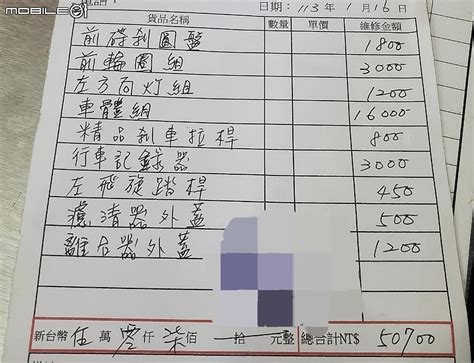 mobile01
日期：113年1月16日
貨品名稱 數量 單價 維修金額
前碟剎圓盤 1800
前輪圈組 3000
左方向灯組 1200
車體組 16000
精品剎車拉桿 800
行車記錄器 3000
左飛旋踏桿 450
濾清器外蓋 500
離合器外蓋 1200
新台幣 伍萬零仟柒佰 拾 元整 總合計NT$ 50700